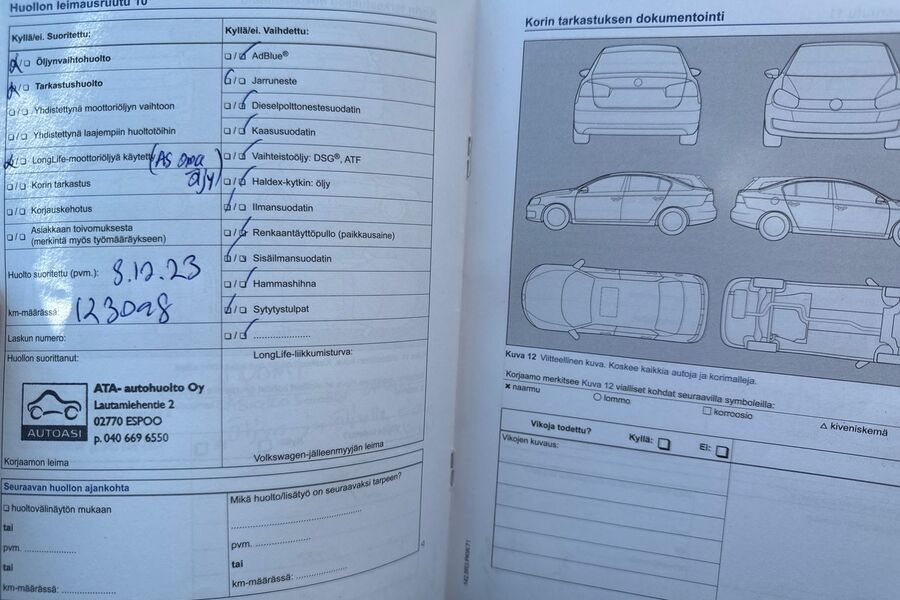 Huollon leimausruutu 10
Kyllä/ei. Suoritettu:
Öljynvaihtohuolto
Tarkastushuolto
Yhdistettynä moottoriöljyn vaihtoon
Yhdistettynä laajempiin huoltotöihin
LongLife-moottoriöljyä käytetty (AS oma öljy)
Korin tarkastus
Korjauskehotus
Asiakkaan toivomuksesta
(merkintä myös työmääräykseen)
Huolto suoritettu (pvm.): 8.12.23
km-määrässä: 123098
Laskun numero:
Huollon suorittanut:
AUTOASI
ATA- autohuolto Oy
Lautamiehentie 2
02770 ESPOO
p. 040 669 6550
Korjaamon leima
Kyllä/ei. Vaihdettu:
AdBlue®
Jarruneste
Dieselpolttonestesuodatin
Kaasusuodatin
Vaihteistoöljy: DSG®, ATF
Haldex-kytkin: öljy
Ilmansuodatin
Renkaantäyttöpullo (paikkausaine)
Sisäilmansuodatin
Hammashihna
Sytytystulpat
LongLife-liikkumisturva:
Volkswagen-jälleenmyyjän leima
Seuraavan huollon ajankohta
huoltovälinäytön mukaan
tai
pvm.
tai
km-määrässä:
Mikä huolto/lisätyö on seuraavaksi tarpeen?
pvm.
tai
km-määrässä:
Korin tarkastuksen dokumentointi
Kuva 12 Viitteellinen kuva. Koskee kaikkia autoja ja korimalleja.
Korjaamo merkitsee Kuva 12 vialliset kohdat seuraavilla symboleilla:
naarmu
lommo
korroosio
kiveniskemä
Vikoja todettu? Kyllä: Ei:
Vikojen kuvaus: